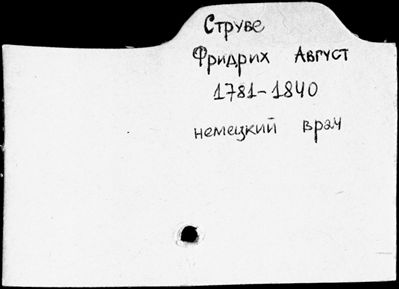 Струве
Фридрих Август
1781-1840
немецкий врач